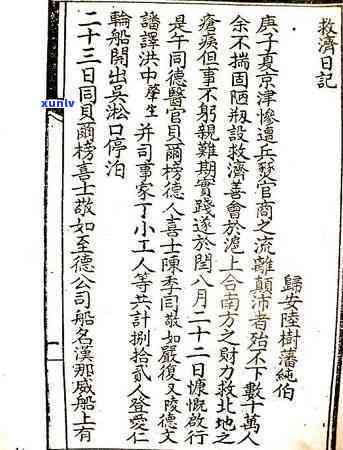 救濟日記
歸安陸樹藩純伯
庚子夏京津慘遭兵燹官商之流離顛沛者殆不下數十萬人
余不揣固陋剏設救濟善會於滬上合南方之財力救北地之
瘡痍但事不躬親難期實踐遂於閏八月二十二日慷慨啟行
是午同德醫官貝爾榜德人喜士陳季同敬如嚴復又陵德文
譒譯洪中生并司事家丁小工人等共計捌拾貳人登愛仁
輪船開出吳淞口停泊
二十三日同貝爾榜喜士敬如至德公司船名漢那威船上有
xunlv